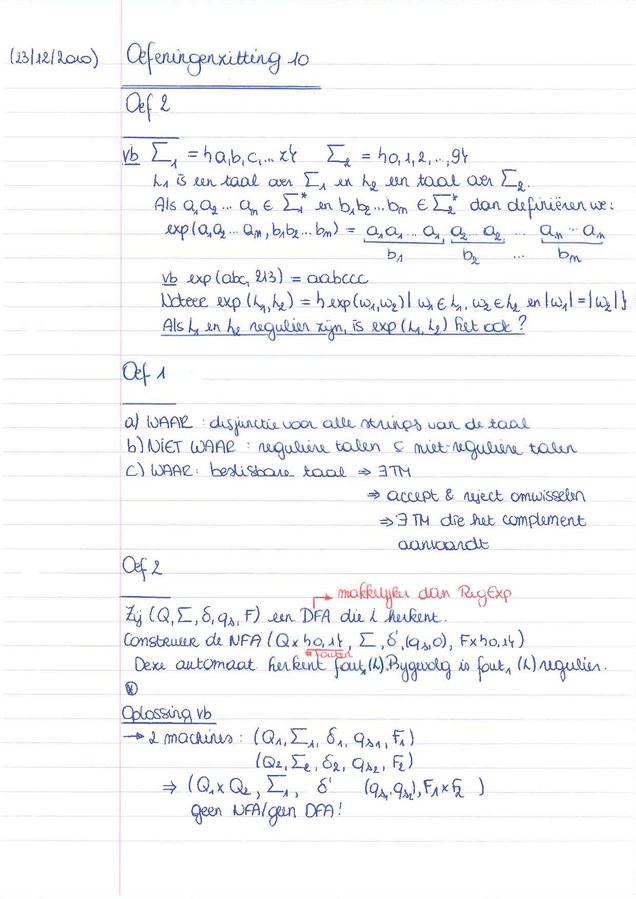 (23/12/2010) Oefeningenzitting 10
Oef 2
vb Σ₁ = {a,b,c,... z} Σ₂ = {0,1,2,..,9}
L₁ is een taal over Σ₁ en L₂ een taal over Σ₂.
Als a₁a₂... aₙ ∈ Σ₁* en b₁b₂...bₘ ∈ Σ₂* dan definiëren we:
exp(a₁a₂... aₘ, b₁b₂... bₘ) = a₁a₁... a₁ a₂... a₂ ... aₙ... aₙ
b₁ b₂ ... bₘ
vb exp(abc, 213) = aabccc
Noteer exp(L₁,L₂) = {exp(w₁,w₂)| w₁∈L₁, w₂∈L₂ en |w₁|=|w₂|}
Als L₁ en L₂ regulier zijn, is exp(L₁,L₂) het ook?
Oef 1
a) WAAR : disjunctie voor alle strings van de taal
b) NIET WAAR : reguliere talen ⊂ niet-reguliere talen
c) WAAR: beslisbare taal ⇒ ∃TM
⇒ accept & reject omwisselen
⇒ ∃ TM die het complement
aanvaardt
Oef 2
→ makkelijker dan RegExp
Zij (Q, Σ, δ, qₛ, F) een DFA die L herkent.
Construeer de NFA (Q×{0,1}, Σ, δ', (qₛ,0), F×{0,1})
# fouten
Deze automaat herkent fout₁(L). Bijgevolg is fout₁ (L) regulier.
Oplossing vb
→ 2 machines: (Q₁, Σ₁, δ₁, qₛ₁, F₁)
(Q₂, Σ₂, δ₂, qₛ₂, F₂)
⇒ (Q₁×Q₂, Σ₁, δ' (qₛ₁,qₛ₂), F₁×F₂ )
geen NFA/geen DFA!